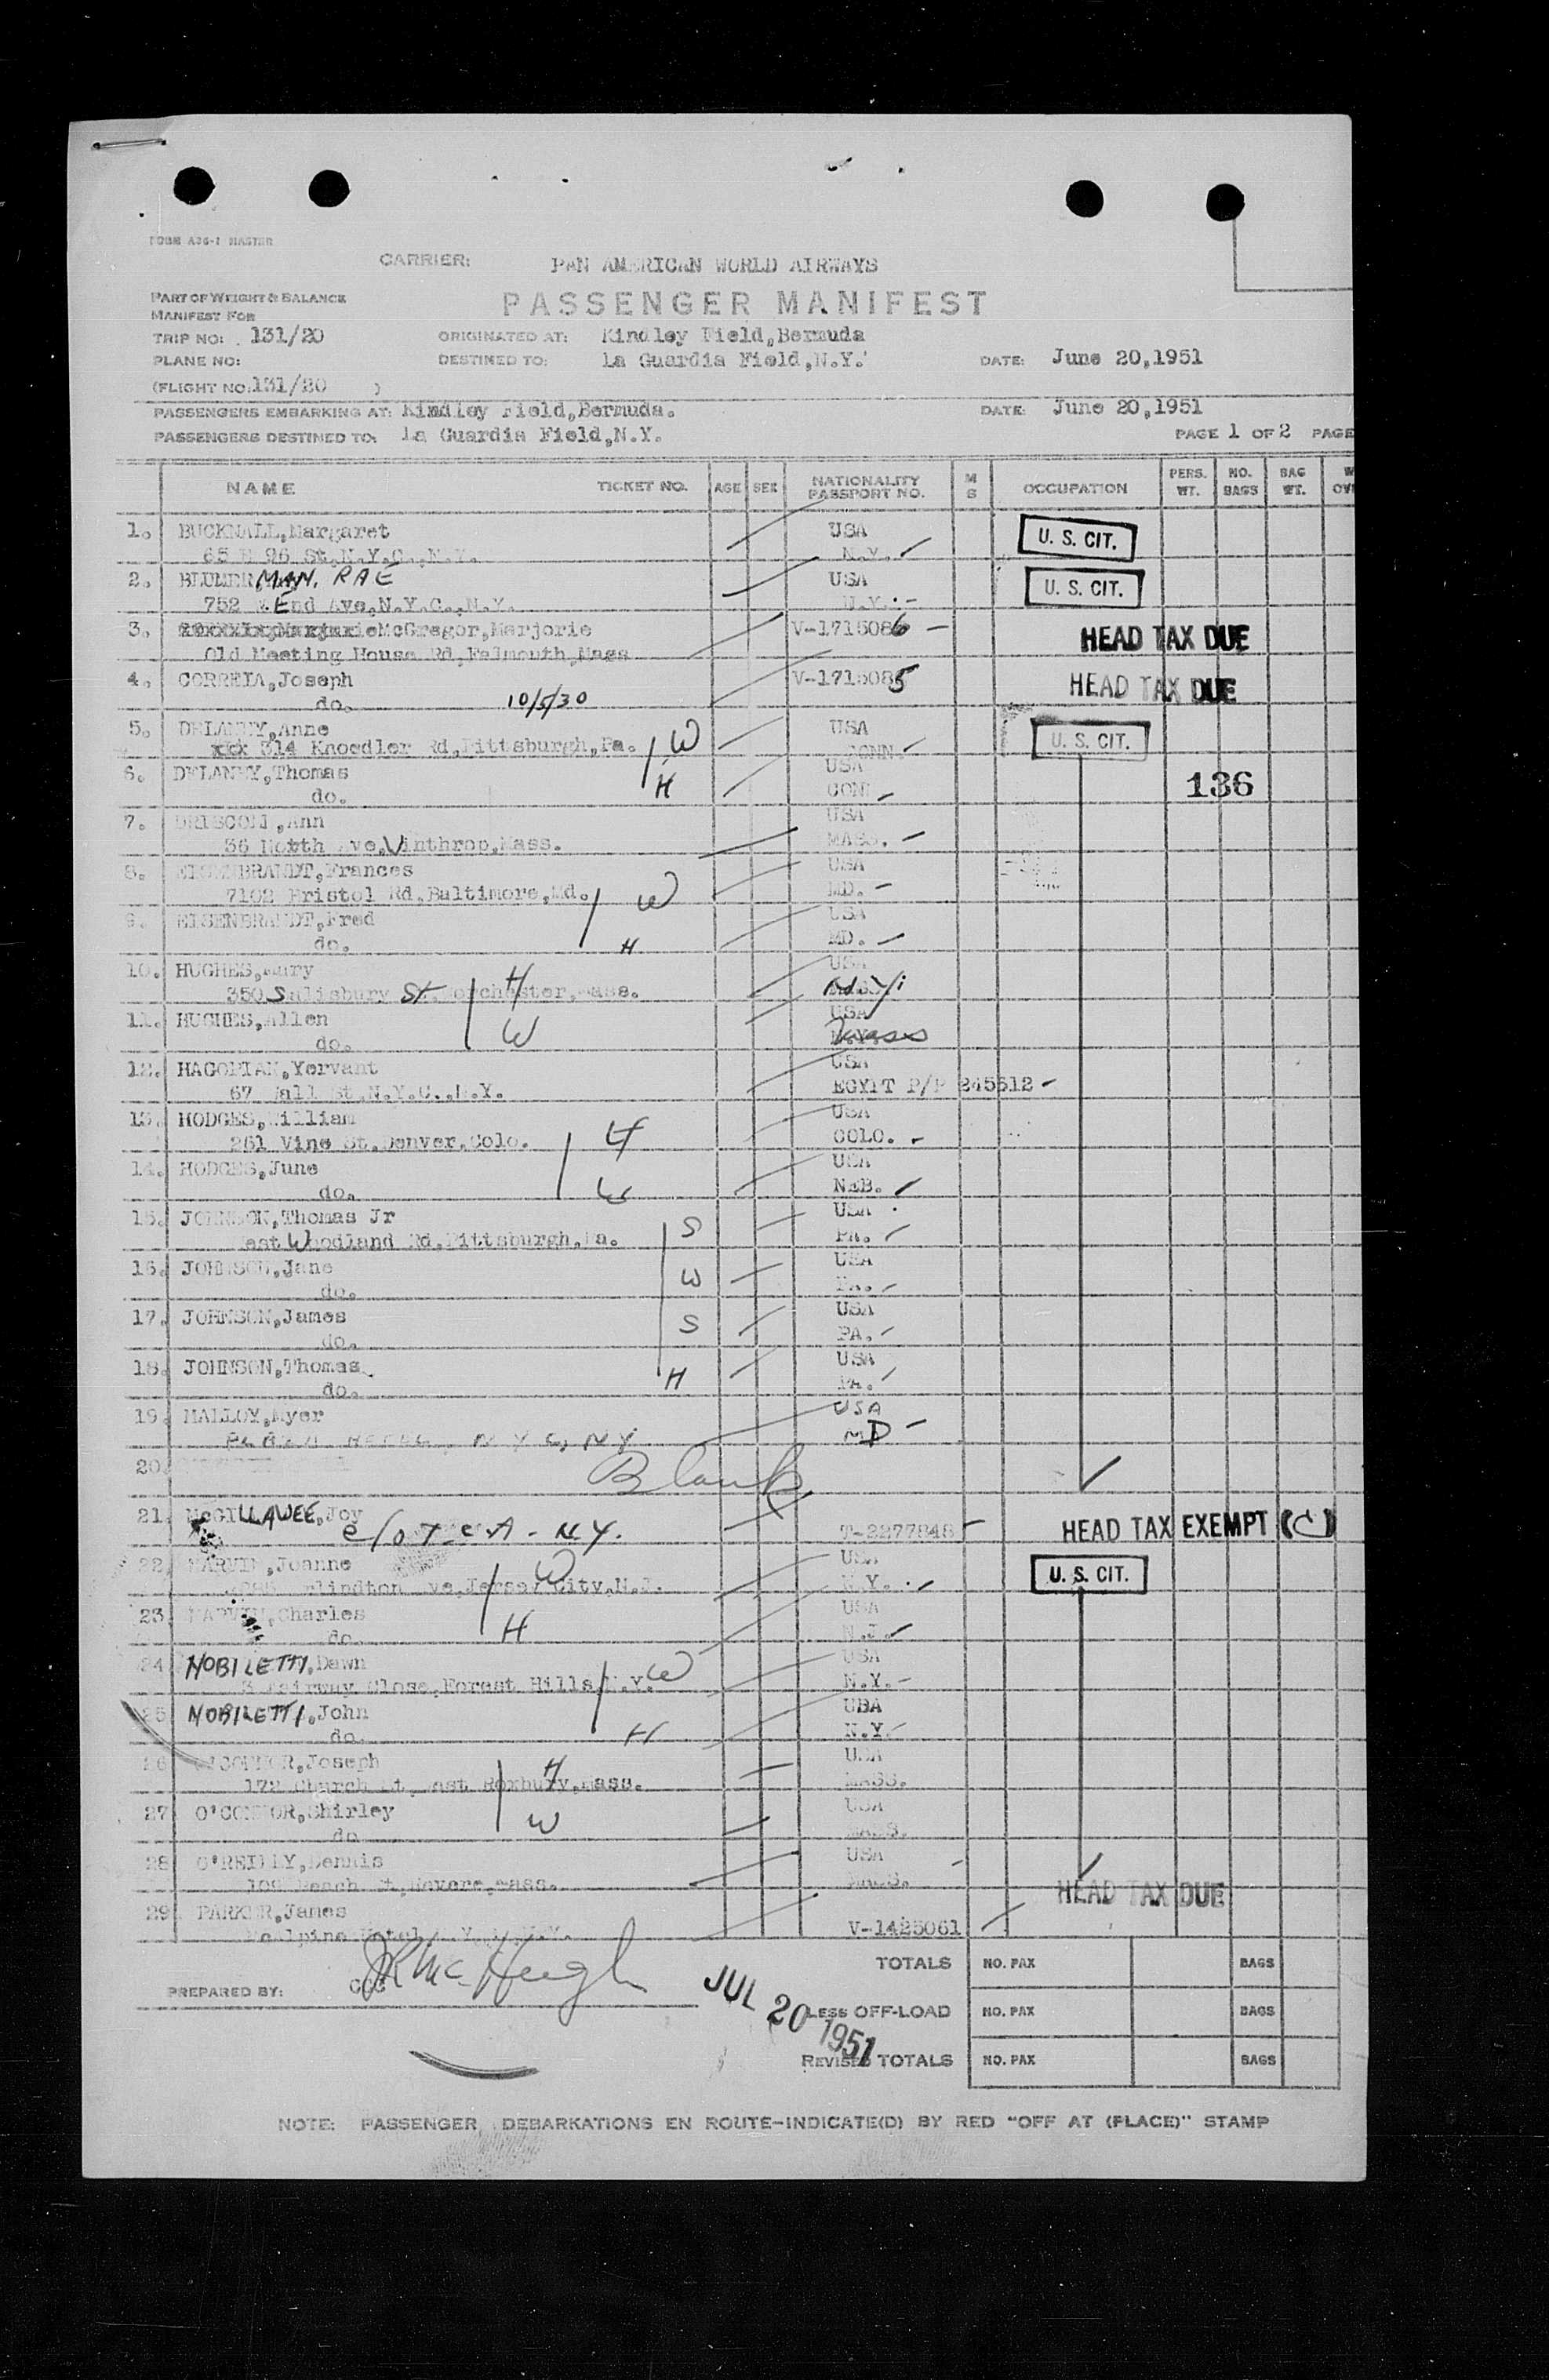 FORM A36-1 MASTER
CARRIER: PAN AMERICAN WORLD AIRWAYS
PART OF WEIGHT & BALANCE
MANIFEST FOR
PASSENGER MANIFEST
TRIP NO: 131/20 ORIGINATED AT: Kindley Field,Bermuda
PLANE NO: DESTINED TO: La Guardia Field,N.Y. DATE: June 20,1951
(FLIGHT NO:131/20 )
PASSENGERS EMBARKING AT: Kindley Field,Bermuda. DATE: June 20,1951
PASSENGERS DESTINED TO: La Guardia Field,N.Y. PAGE 1 OF 2 PAGE
NAME TICKET NO. AGE SEX NATIONALITY PASSPORT NO. M S OCCUPATION PERS. WT. NO. BAGS BAG WT.
1. BUCKNALL,Margaret USA U. S. CIT.
65 E 96 St,N.Y.C.,N.Y. N.Y.
2. BLUMERMAN, RAE USA U. S. CIT.
752 W.End Ave,N.Y.C.,N.Y. N.Y.
3. McGregor,Marjorie V-1715086 HEAD TAX DUE
Old Meeting House Rd,Falmouth,Mass
4. CORREIA,Joseph V-1715085 HEAD TAX DUE
do. 10/5/30
5. DELANEY,Anne USA U. S. CIT.
xxx 314 Knoedler Rd,Pittsburgh,Pa. W CONN.
6. DELANEY,Thomas USA
do. H CONN 136
7. DRISCOLL,Ann USA
36 North Ave,Winthrop,Mass. MASS.
8. EISENBRANDT,Frances USA
7102 Bristol Rd,Baltimore,Md. W MD.
9. EISENBRANDT,Fred USA
do. H MD.
10. HUGHES,Mary H USA
350 Salisbury St,Worchester,Mass. N.Y.
11. HUGHES,Allen W USA
do. Mass
12. HAGOPIAN,Yervant USA
67 Wall St,N.Y.C.,N.Y. EGYPT P/P 245512
13. HODGES,William H USA
261 Vine St,Denver,Colo. COLO.
14. HODGES,June USA
do. W NEB.
15. JOHNSON,Thomas Jr S USA
East Woodland Rd,Pittsburgh,Pa. PA.
16. JOHNSON,Jane W USA
do. PA.
17. JOHNSON,James S USA
do. PA.
18. JOHNSON,Thomas USA
do. H PA.
19. MALLOY,Myer USA
PLAZA HOTEL, N Y C, N Y MD
20. Blank
21. McGILLAWEE,Joy T-2277848 HEAD TAX EXEMPT (C)
c/o T C A - N.Y.
22. MARVIN,Joanne W USA U. S. CIT.
Arlindton Ave,Jersey City,N.J. N.Y.
23. MARVIN,Charles USA
do. H N.J.
24. NOBILETTI,Dawn W USA
Fairway Close,Forest Hills,N.Y. N.Y.
25. NOBILETTI,John USA
do. H N.Y.
26. O'CONNOR,Joseph H USA
172 Church St,West Roxbury,Mass. MASS.
27. O'CONNOR,Shirley USA
do W MASS.
28. O'REILLY,Dennis USA
Beach St,Revere,Mass. MASS.
29. PARKER,James V-1425061 HEAD TAX DUE
McAlpine Hotel,N.Y.C.,N.Y.
TOTALS NO. PAX BAGS
PREPARED BY: CCG JR McHugh JUL 20 1951
LESS OFF-LOAD NO. PAX BAGS
REVISED TOTALS NO. PAX BAGS
NOTE: PASSENGER DEBARKATIONS EN ROUTE-INDICATE(D) BY RED "OFF AT (PLACE)" STAMP